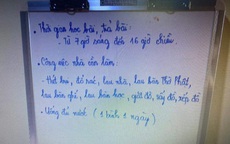 . Thời gian học bài, trả bài:
- Từ 7 giờ sáng đến 16 giờ chiều.
. Công việc nhà cần làm:
- Hút bụi, đổ rác, lau nhà, lau bàn Thờ Phật,
lau bàn ghế, lau bàn học, giặt đồ, sấy đồ, xếp đồ
- Uống đủ nước (1 bình 1 ngày)